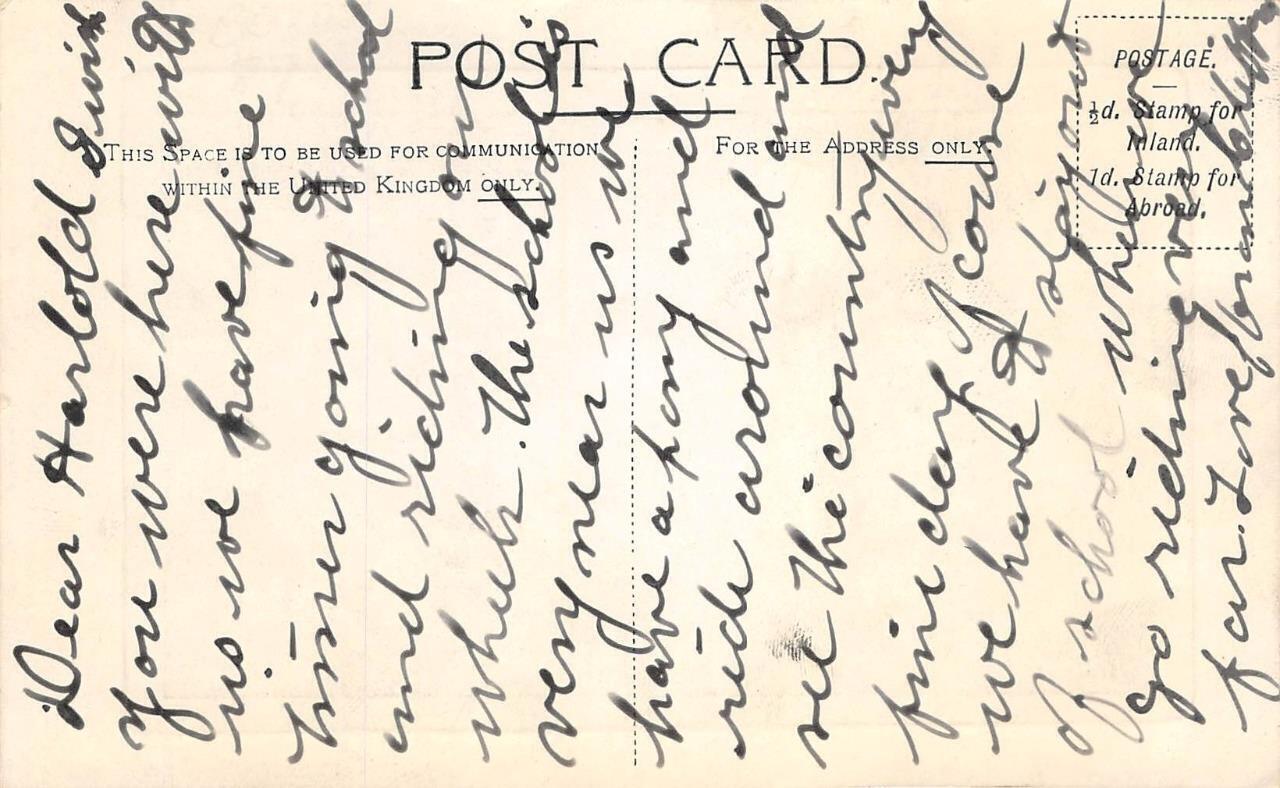 POST CARD.
THIS SPACE IS TO BE USED FOR COMMUNICATION
WITHIN THE UNITED KINGDOM ONLY.
FOR THE ADDRESS ONLY.
POSTAGE.
½d. Stamp for
Inland.
1d. Stamp for
Abroad.
Dear Harlold I wish
you were here with
us we have fine
times going to school
and riding on
wheels. The school is
very near us we
have a pony and
ride around and
se the country every
fine day of course
we have to stay out
of school when we
go riding very
far. Love from